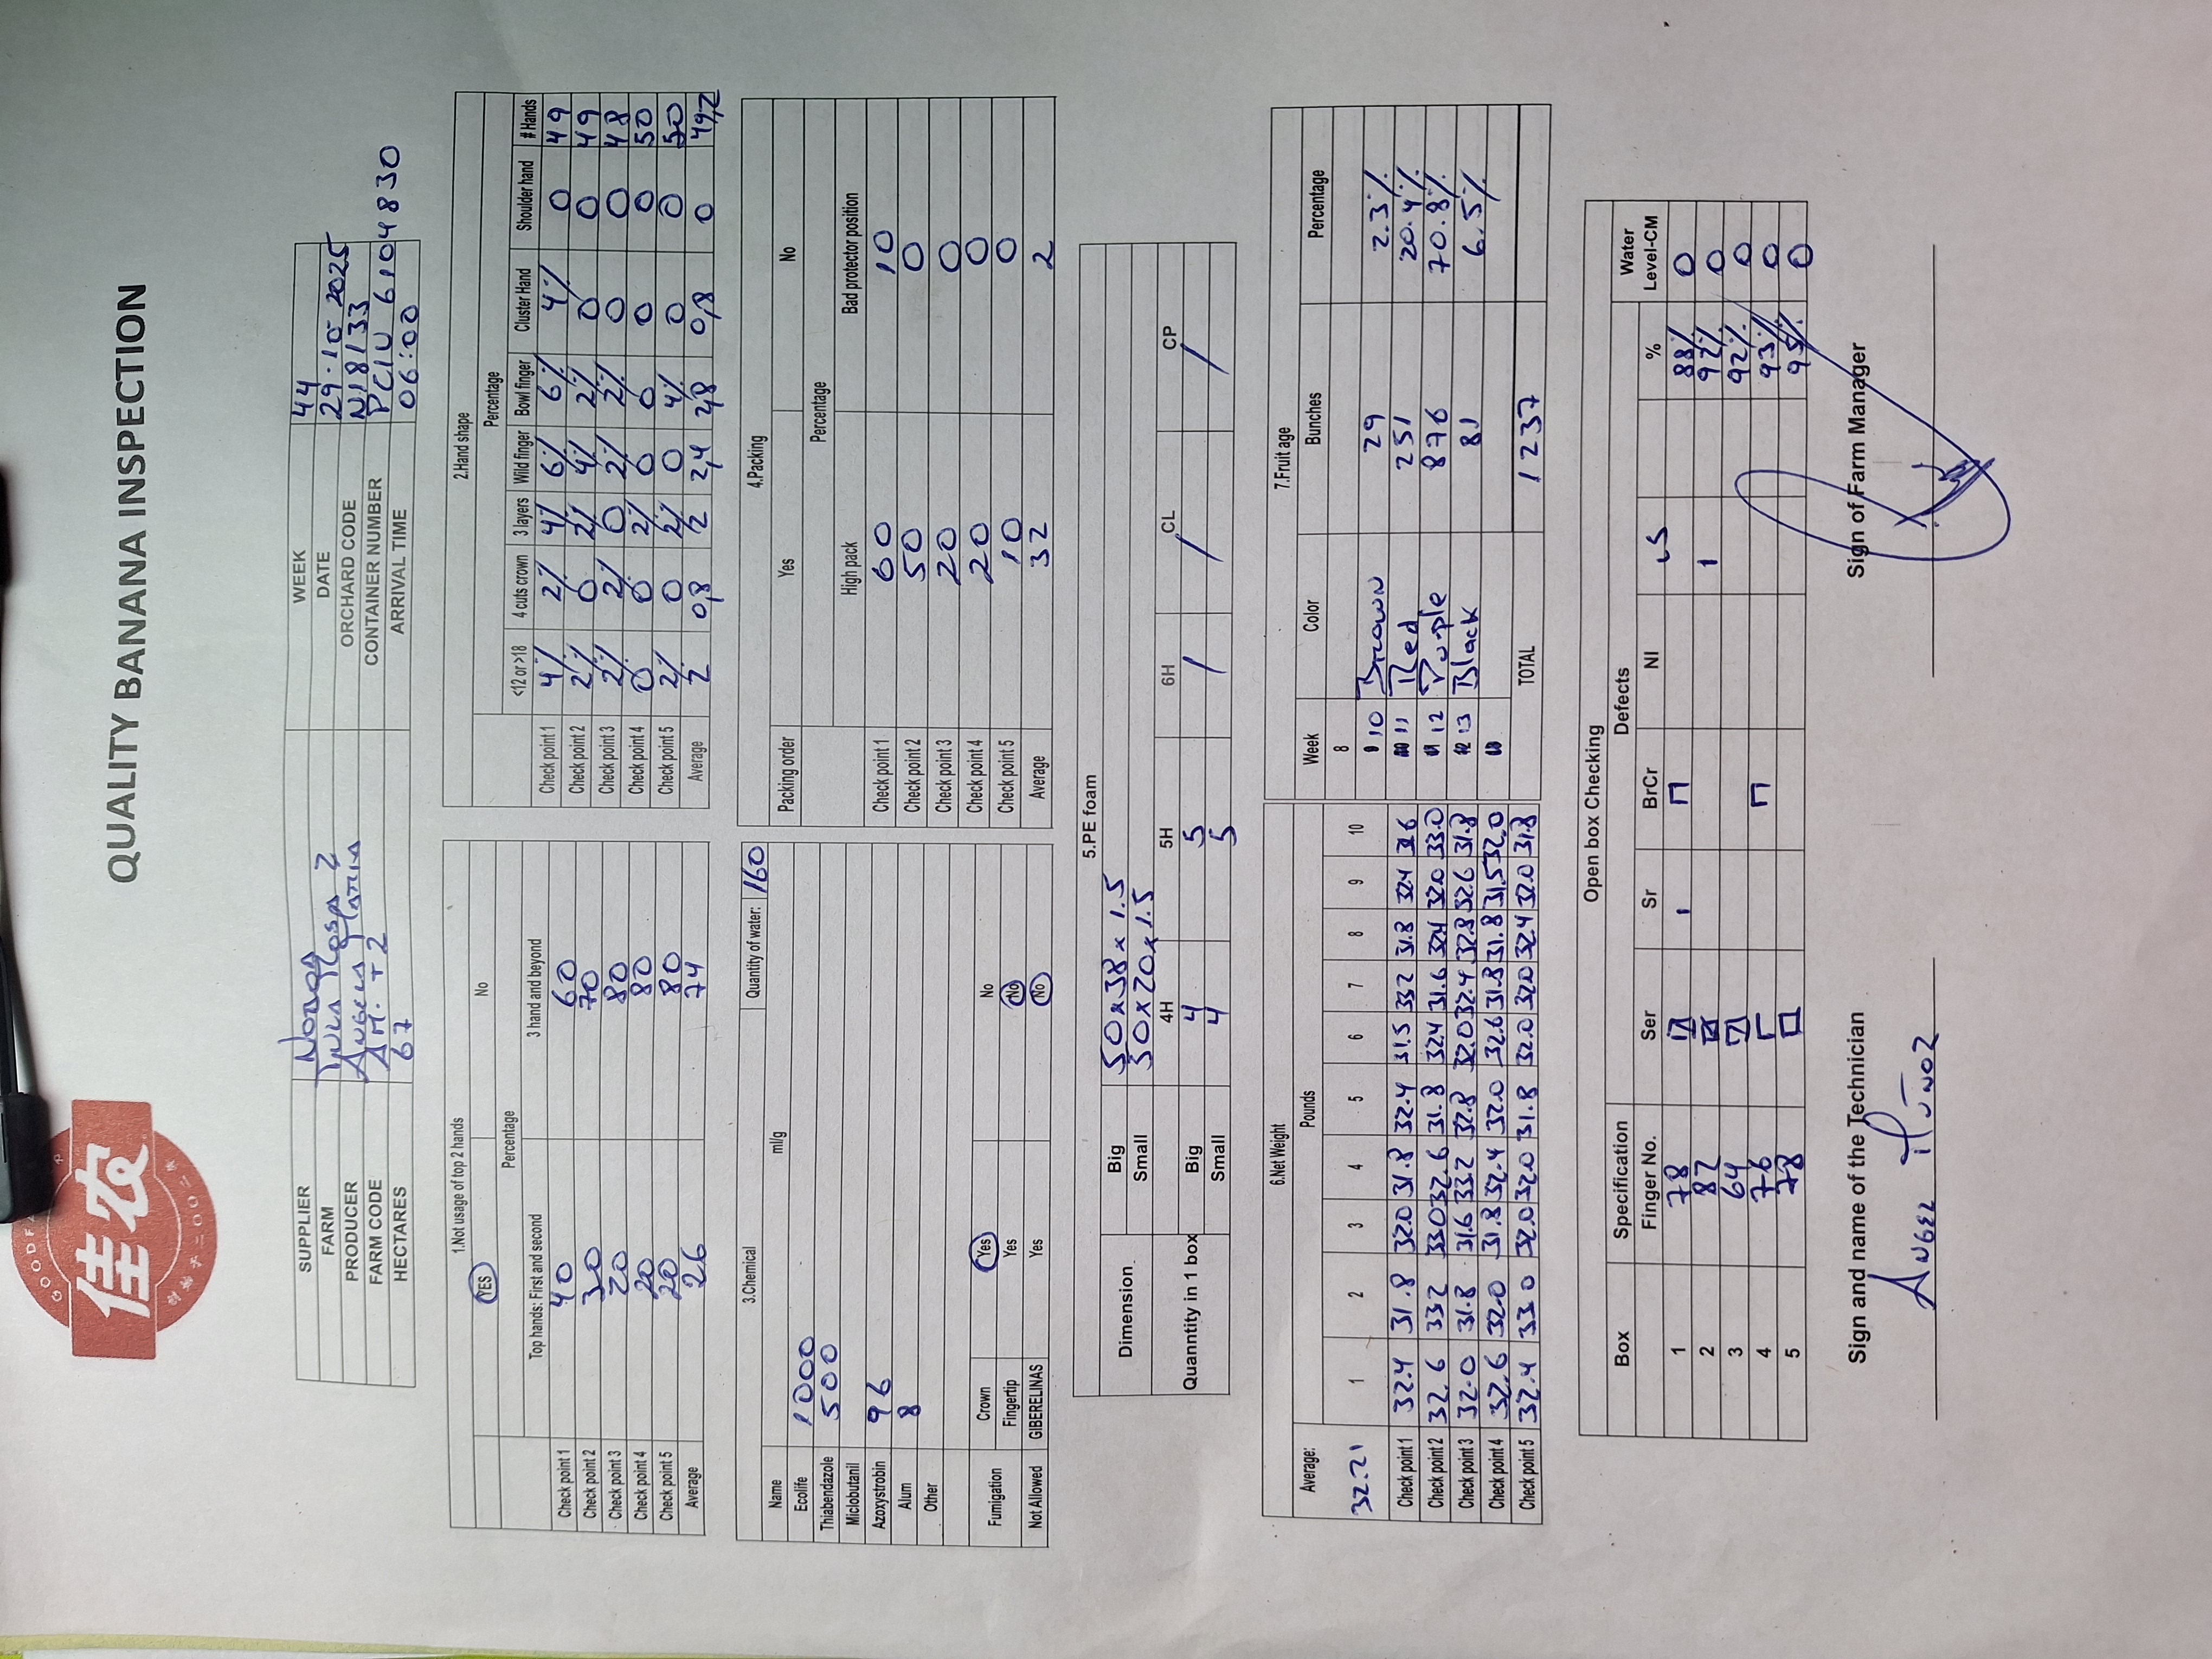 GOODFA R
佳农
创始于二〇〇二年
QUALITY BANANA INSPECTION
SUPPLIER Noboa WEEK 44
FARM Rosa 2 DATE 29-10-2025
PRODUCER Angela Maria ORCHARD CODE N18133
FARM CODE AM. T2 CONTAINER NUMBER PCIU 6104830
HECTARES 67 ARRIVAL TIME 06:00
1.Not usage of top 2 hands
YES No
Percentage
Top hands: First and second 3 hand and beyond
Check point 1 40 60
Check point 2 30 70
Check point 3 20 80
Check point 4 20 80
Check point 5 20 80
Average 26 74
2.Hand shape
Percentage
<12 or >18 4 cuts crown 3 layers Wild finger Bowl finger Cluster Hand Shoulder hand # Hands
Check point 1 4% 2% 4% 6% 6% 4% 0 49
Check point 2 2% 0 2% 4% 2% 0 0 49
Check point 3 2% 2% 0 2% 2% 0 0 48
Check point 4 0 0 2% 0 0 0 0 50
Check point 5 2% 0 2% 0 4% 0 0 50
Average 2 0,8 2 2,4 2,8 0,8 0 49,2
3.Chemical Quantity of water: 160
Name ml/g
Ecolife 1000
Thiabendazole 500
Miclobutanil
Azoxystrobin 96
Alum 8
Other
Fumigation Crown Yes No
Fingertip Yes No
Not Allowed GIBERELINAS Yes No
4.Packing
Packing order Yes No
Percentage
High pack Bad protector position
Check point 1 60 10
Check point 2 50 0
Check point 3 20 0
Check point 4 20 0
Check point 5 10 0
Average 32 2
5.PE foam
Dimension Big 50x38x1.5
Small 50x20x1.5
4H 5H 6H CL CP
Quanntity in 1 box Big 4 5 / / /
Small 4 5
6.Net Weight
Average: Pounds
32.21 1 2 3 4 5 6 7 8 9 10
Check point 1 32.4 31.8 32.0 31.8 32.4 31.5 33.2 31.8 32.4 31.6
Check point 2 32.6 33.2 33.0 32.6 31.8 32.4 31.6 32.4 32.0 33.0
Check point 3 32.0 31.8 31.6 33.2 32.8 32.0 32.4 32.8 32.6 31.8
Check point 4 32.6 32.0 31.8 32.4 32.0 32.6 31.8 31.8 31.5 32.0
Check point 5 32.4 33.0 32.0 32.0 31.8 32.0 32.0 32.4 32.0 31.8
7.Fruit age
Week Color Bunches Percentage
8
10 Brown 29 2.3%
11 Red 251 20.4%
12 Purple 876 70.8%
13 Black 81 6.5%
TOTAL 1237
Open box Checking
Box Specification Defects Water
Finger No. Ser Sr BrCr NI LS % Level-CM
1 78 88% 0
2 87 1 92% 0
3 64 92% 0
4 76 93% 0
5 78 95% 0
Sign and name of the Technician Sign of Farm Manager
Angel Muñoz